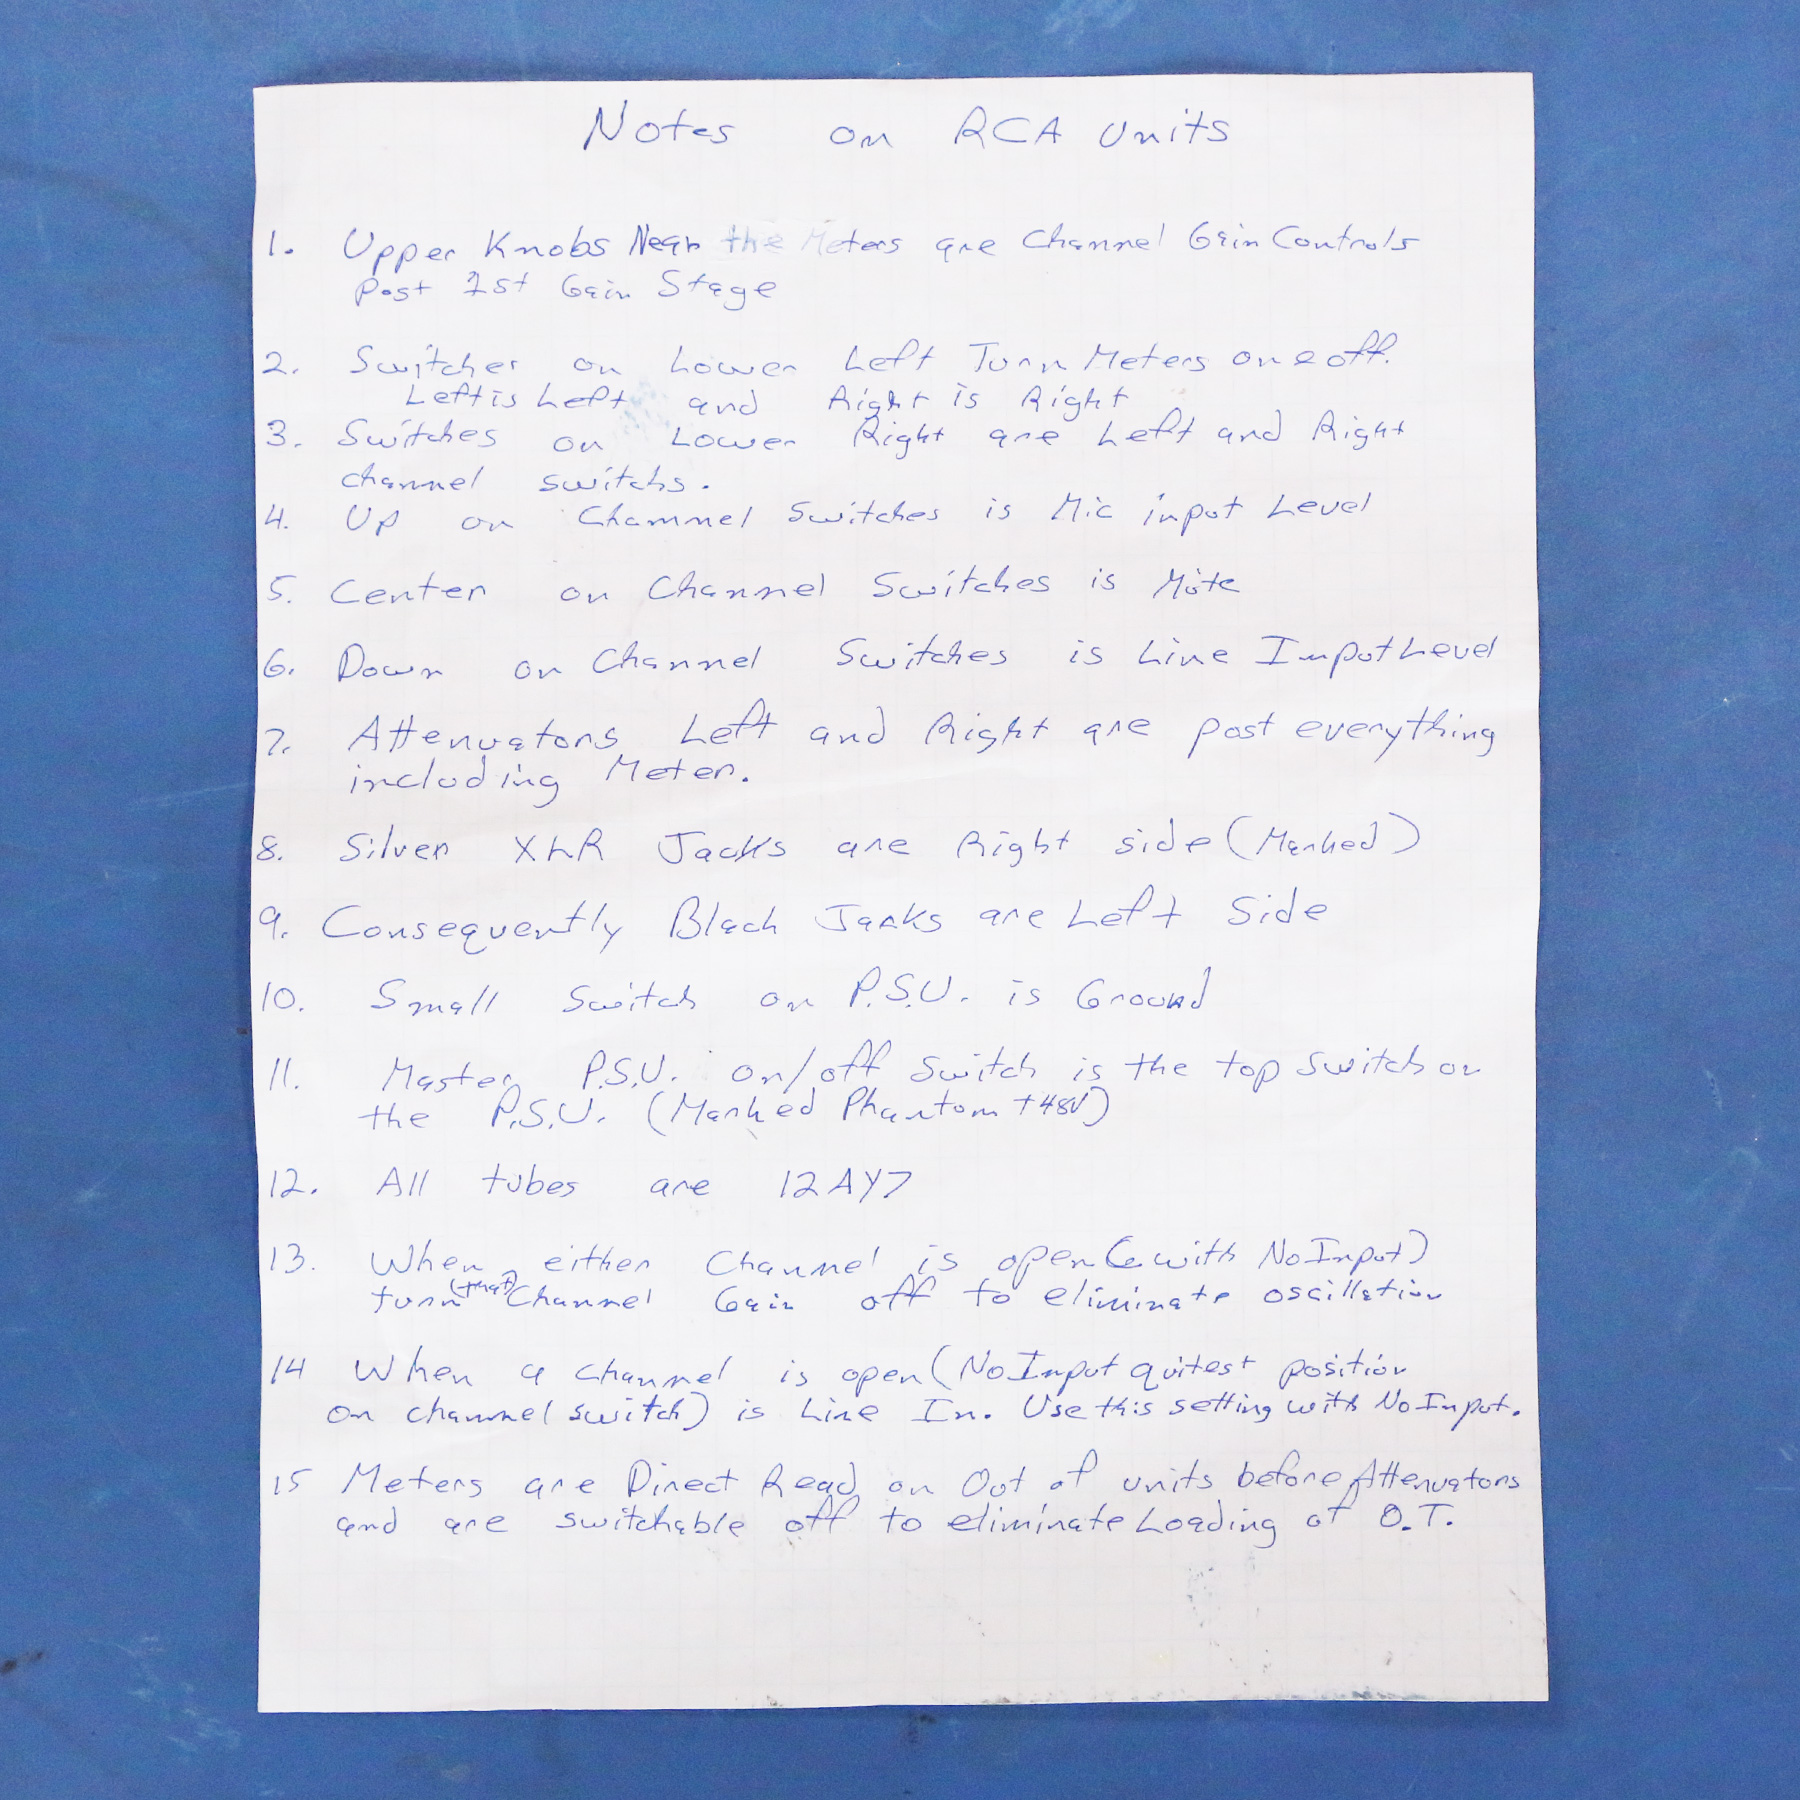 Notes on RCA Units
1. Upper Knobs Near the Meters are Channel Gain Controls
Post 1st Gain Stage
2. Switches on Lower Left Turn Meters on & off.
Left is Left and Right is Right
3. Switches on Lower Right are Left and Right
channel switchs.
4. Up on Channel Switches is Mic input Level
5. Center on Channel Switches is Mute
6. Down on Channel Switches is Line Input Level
7. Attenuators Left and Right are post everything
including Meter.
8. Silver XLR Jacks are Right side (Marked)
9. Consequently Black Jacks are Left Side
10. Small Switch on P.S.U. is Ground
11. Master P.S.U. on/off switch is the top switch on
the P.S.U. (Marked Phantom +48V)
12. All tubes are 12AY7
13. When either Channel is open (with No Input)
turn (that) Channel Gain off to eliminate oscillation
14 When a channel is open (No Input quitest position
on channel switch) is Line In. Use this setting with No Input.
15 Meters are Direct Read on Out of units before Attenuators
and are switchable off to eliminate Loading of O.T.